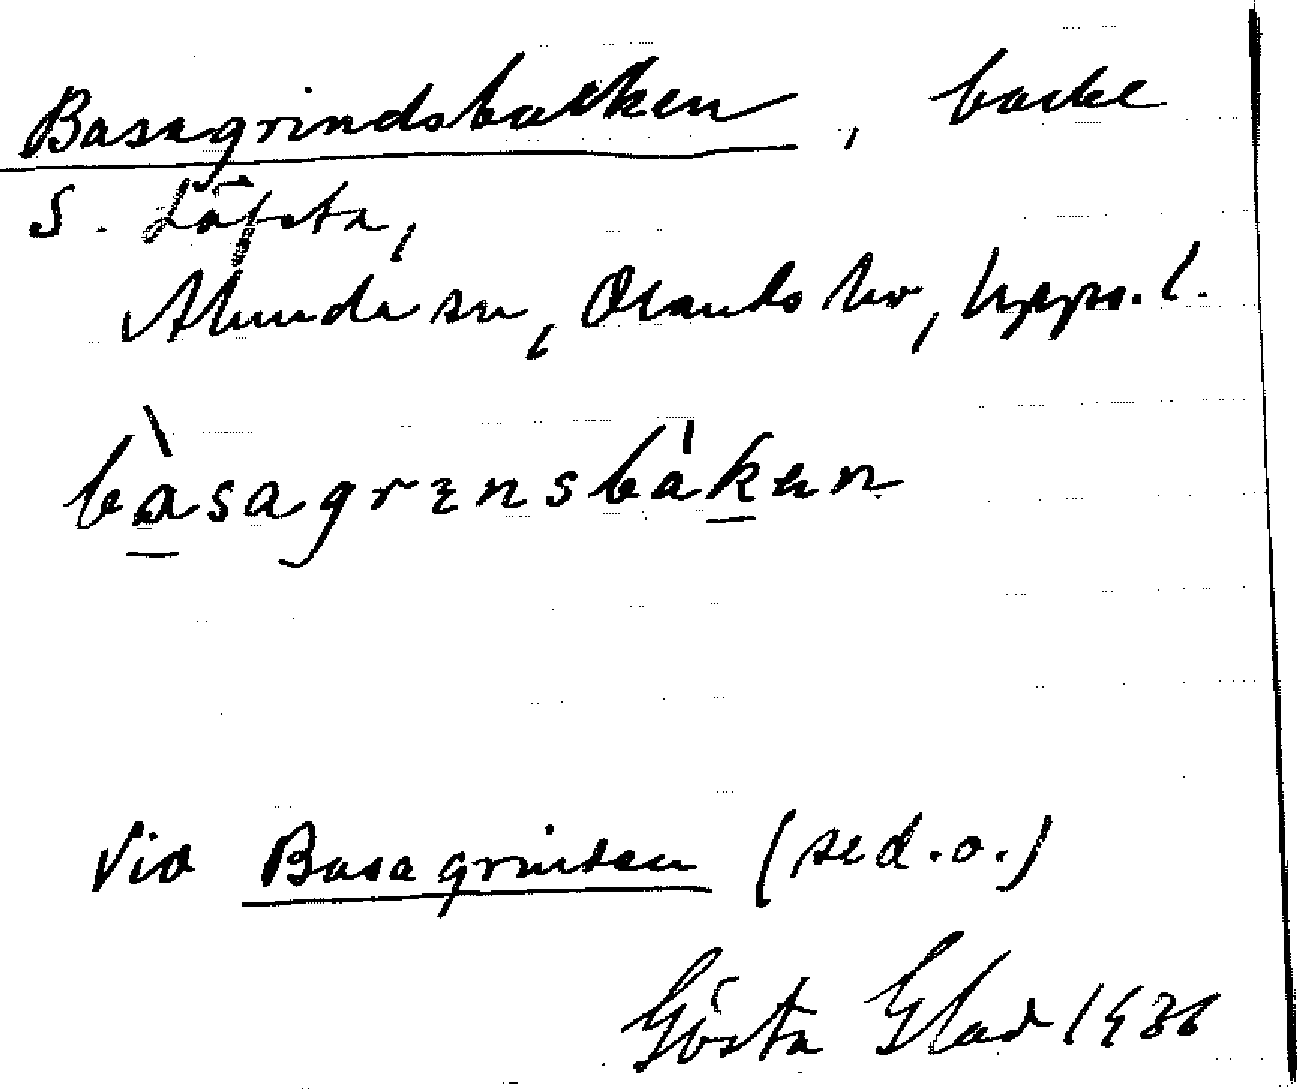 Basagrindsbacken, backe
S. Löfsta,
Alunda sn, Olands hd, Upps. l.
bàsagrensbákεn
Vid Basagrinden (se d. o.)
Gösta Glad 1936